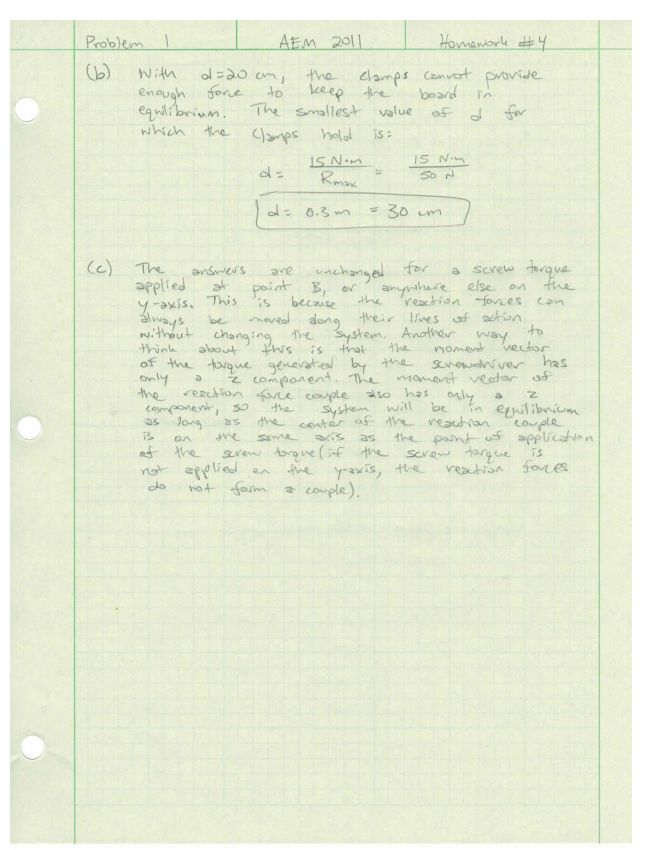 Problem 1 AEM 2011 Homework #4
(b) With d=20 cm, the clamps cannot provide
enough force to keep the board in
equilibrium. The smallest value of d for
which the clamps hold is:
d = 15 N·m / Rmax = 15 N·m / 50 N
d = 0.3 m = 30 cm
(c) The answers are unchanged for a screw torque
applied at point B, or anywhere else on the
y-axis. This is because the reaction forces can
always be moved along their lines of action
without changing the system. Another way to
think about this is that the moment vector
of the torque generated by the screwdriver has
only a z component. The moment vector of
the reaction force couple also has only a z
component, so the system will be in equilibrium
as long as the center of the reaction couple
is on the same axis as the point of application
of the screw torque (if the screw torque is
not applied on the y-axis, the reaction forces
do not form a couple).